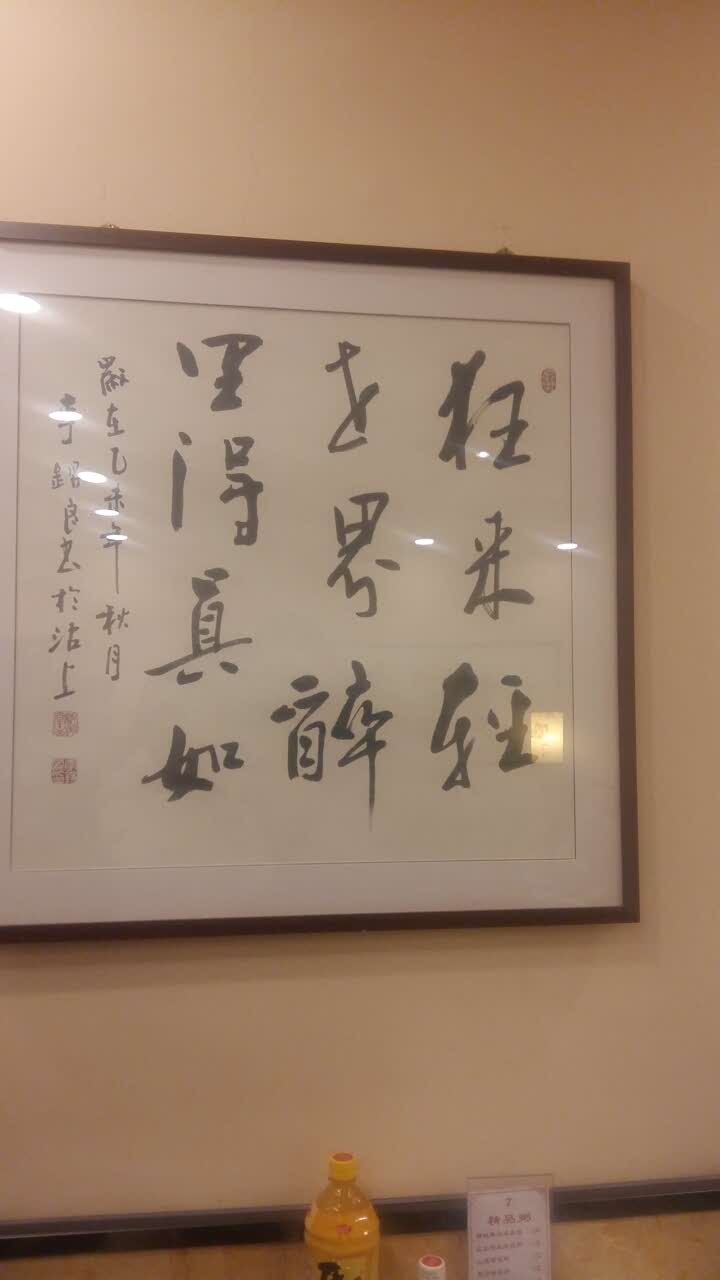 狂来轻
世界醉
里得真如
歲在乙未年秋月
李紹良书於沽上
7
精品粥